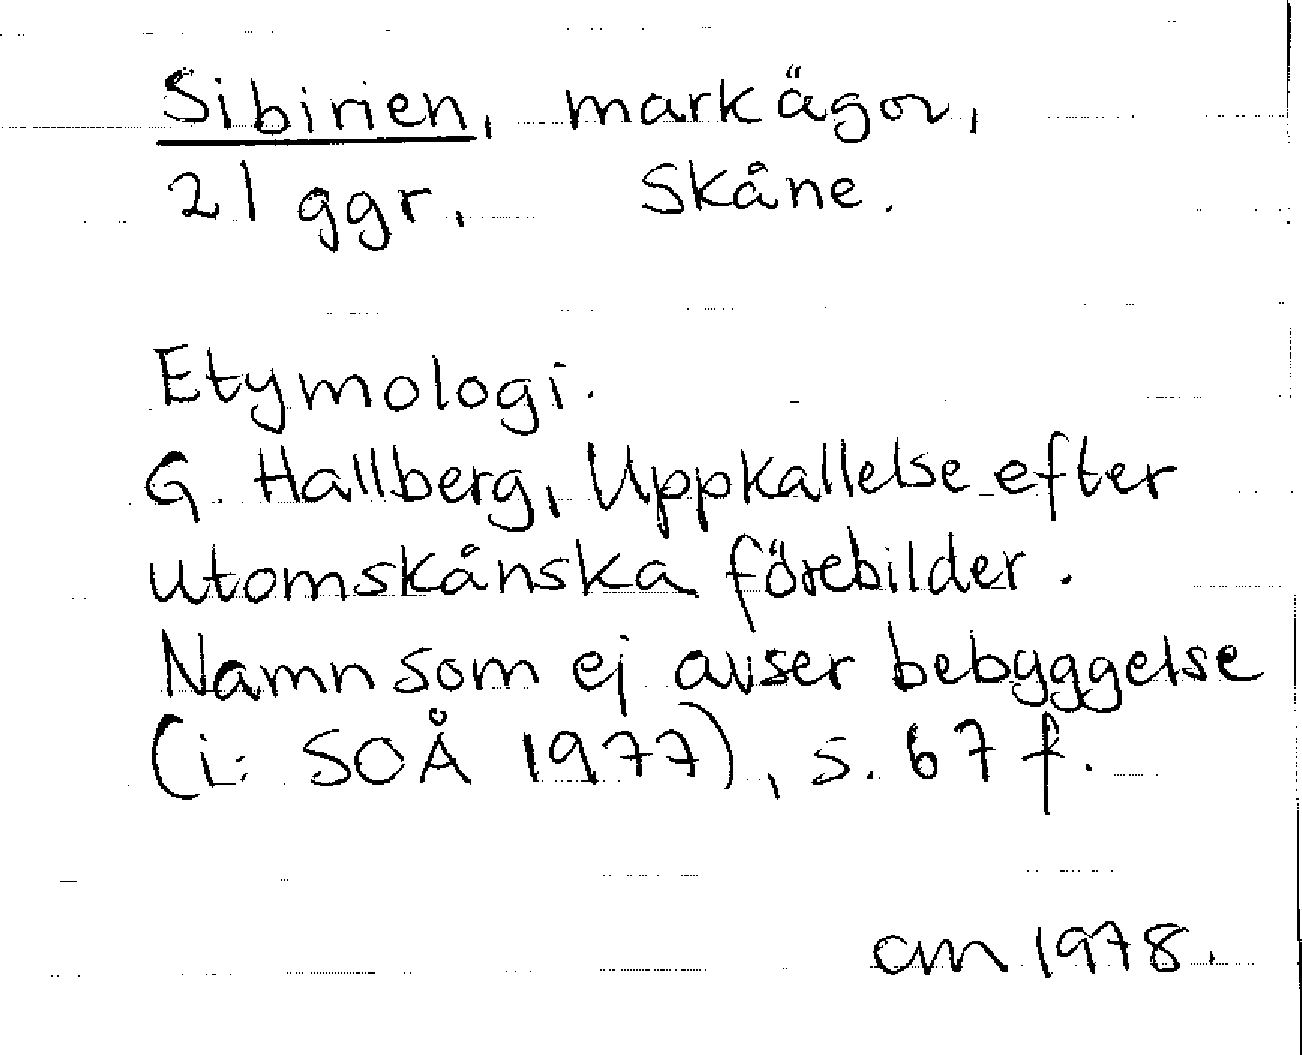 Sibirien, markägor,
21 ggr. Skåne.
Etymologi.
G. Hallberg, Uppkallelse efter
utomskånska förebilder.
Namn som ej avser bebyggelse
(i: SOÅ 1977), s. 67 f.
am 1978.